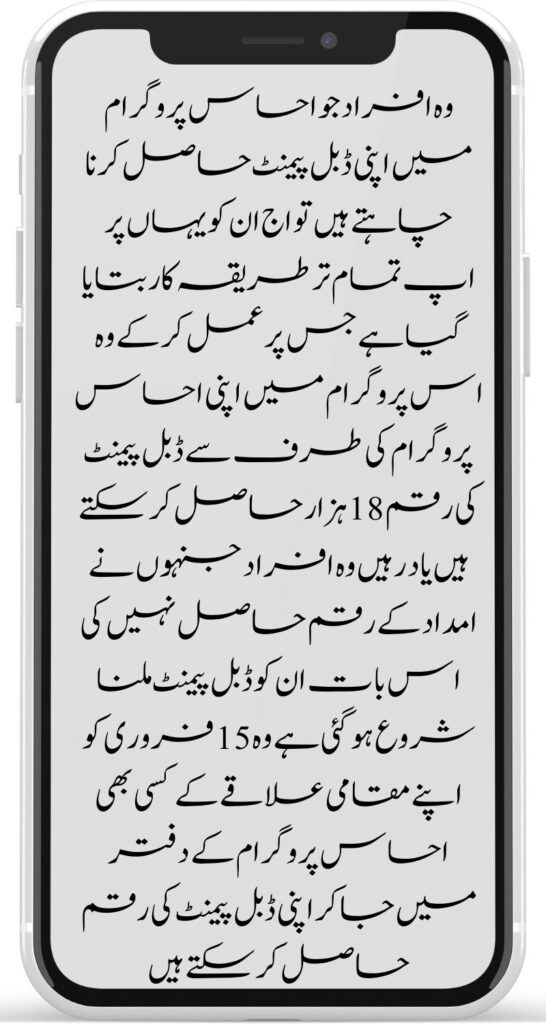 وہ افراد جو احساس پروگرام
میں اپنی ڈبل پیمنٹ حاصل کرنا
چاہتے ہیں تو اج ان کو یہاں پر
اپ تمام تر طریقہ کار بتایا
گیا ہے جس پر عمل کر کے وہ
اس پروگرام میں اپنی احساس
پروگرام کی طرف سے ڈبل پیمنٹ
کی رقم 18 ہزار حاصل کر سکتے
ہیں یاد رہیں وہ افراد جنہوں نے
امداد کے رقم حاصل نہیں کی
اس بات ان کو ڈبل پیمنٹ ملنا
شروع ہو گئی ہے وہ 15 فروری کو
اپنے مقامی علاقے کے کسی بھی
احساس پروگرام کے دفتر
میں جا کر اپنی ڈبل پیمنٹ کی رقم
حاصل کر سکتے ہیں